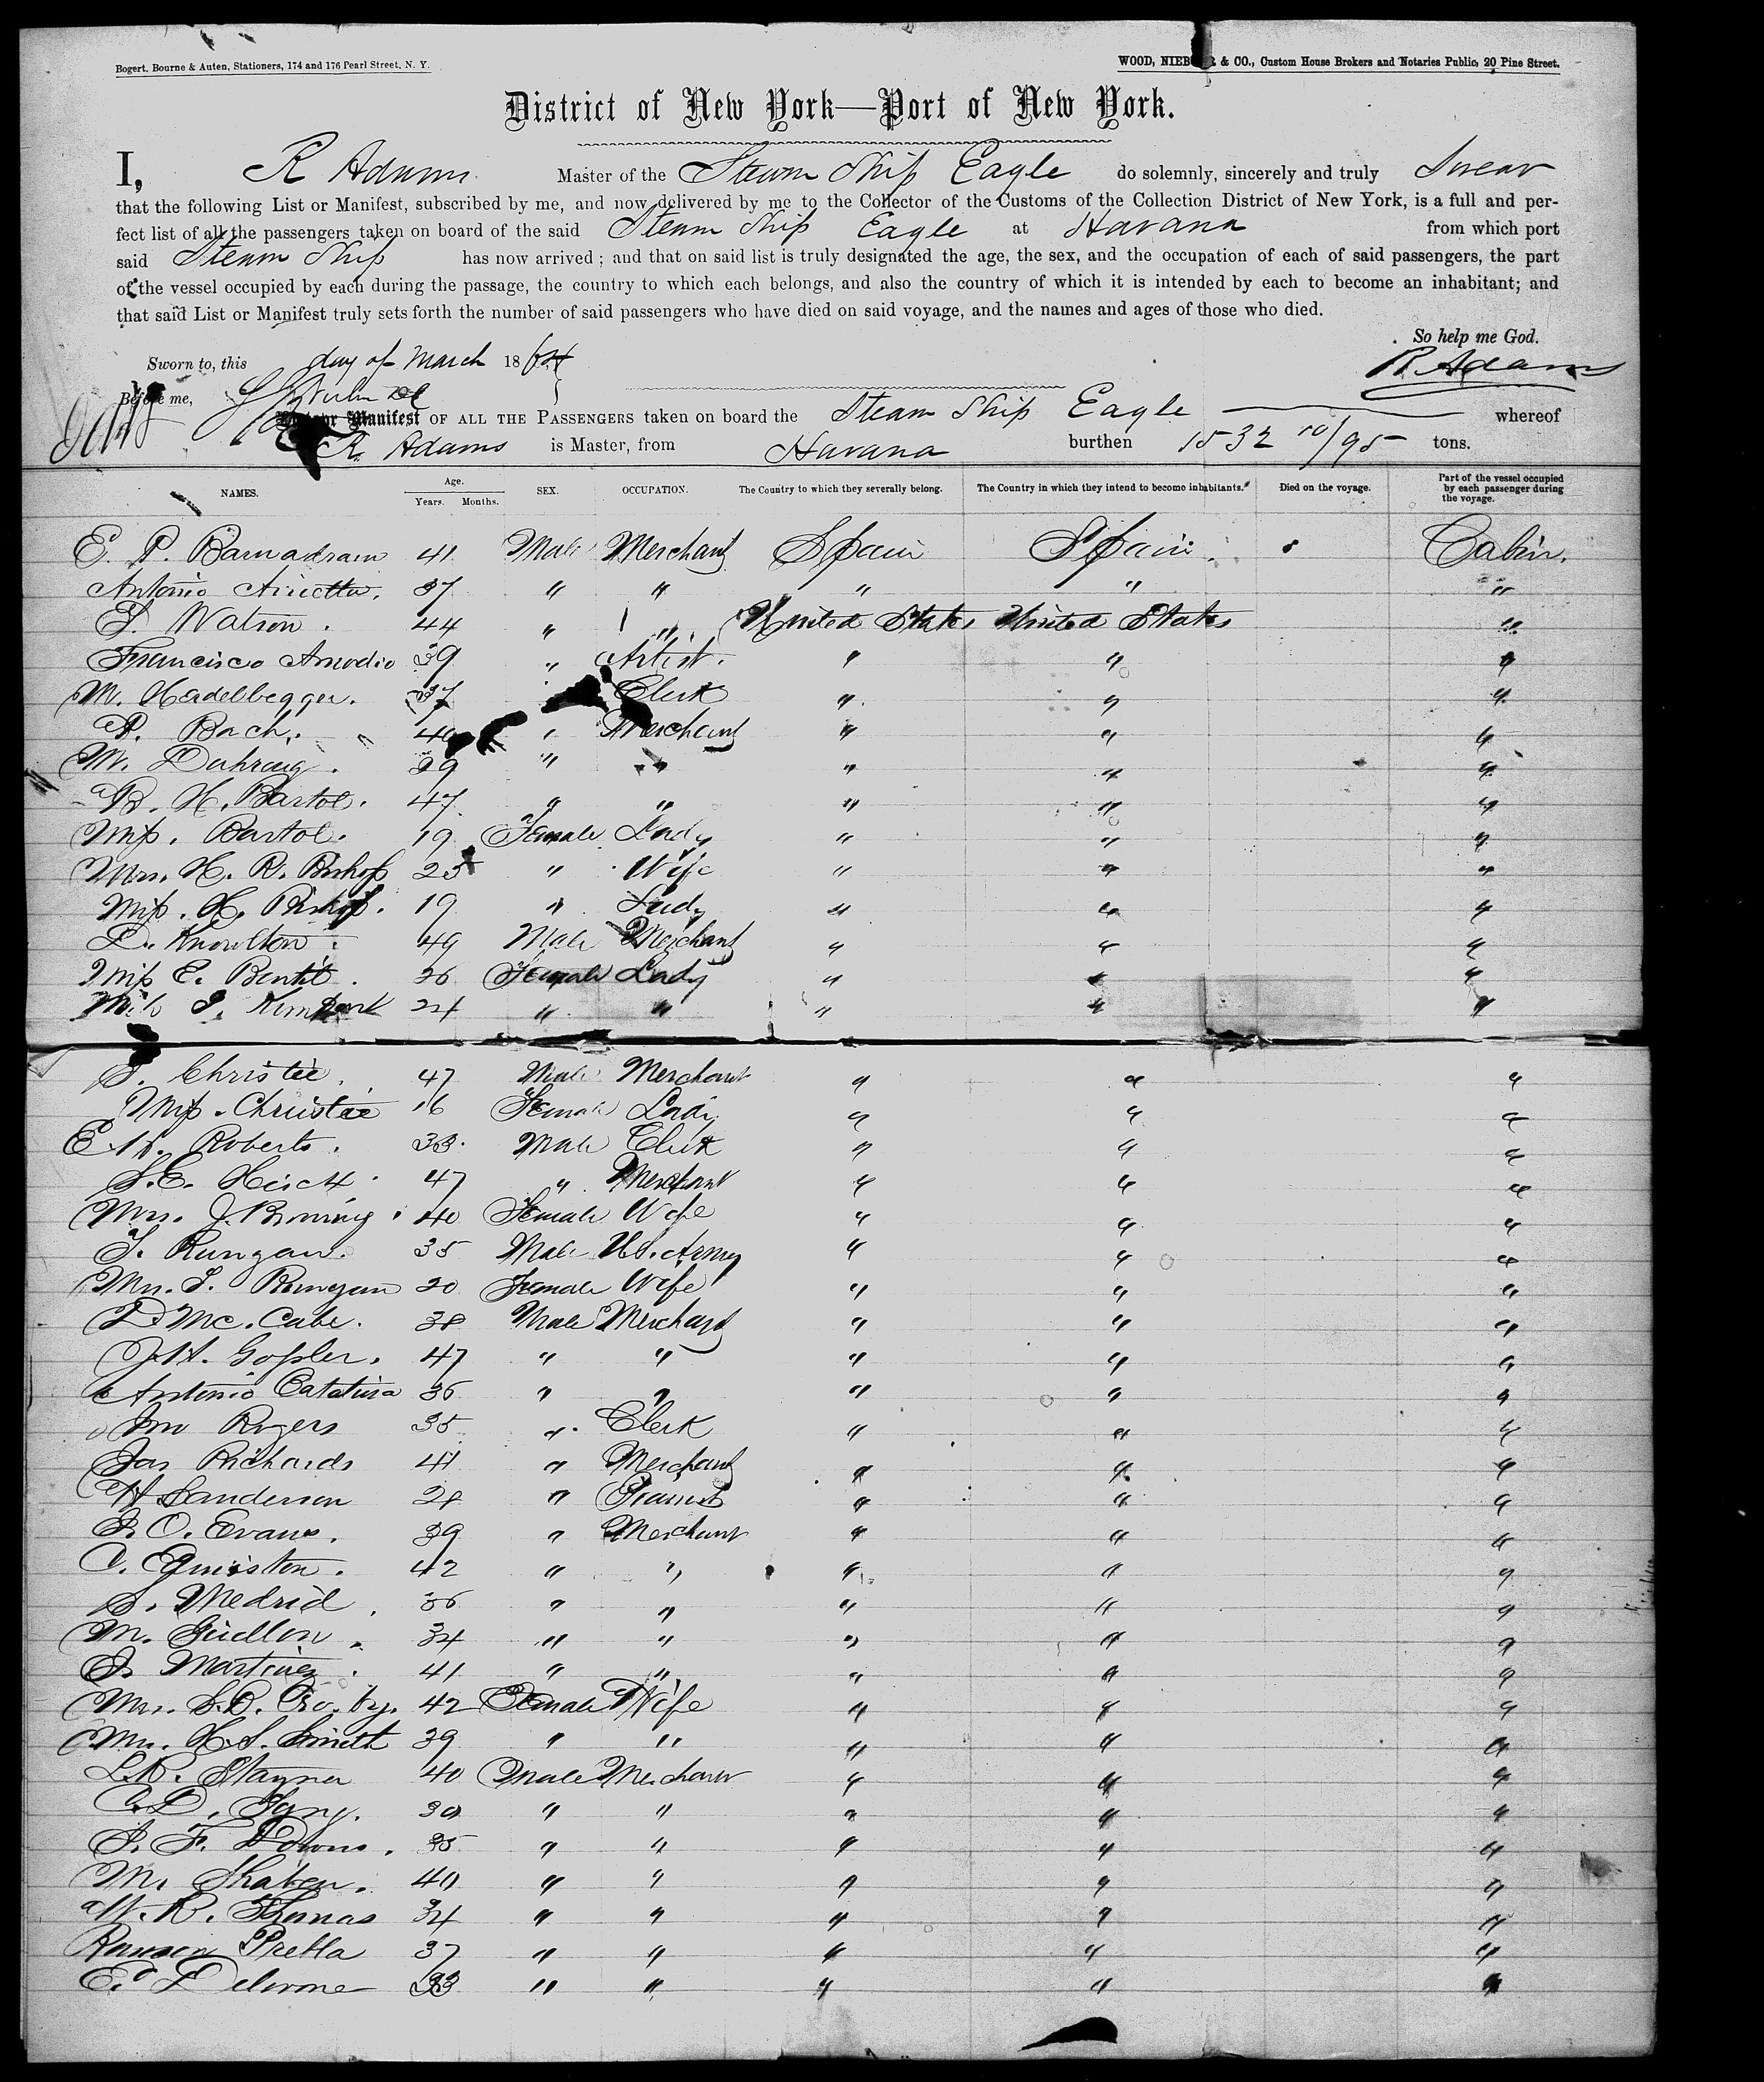 Bogert, Bourne & Auten, Stationers, 174 and 176 Pearl Street, N. Y.
WOOD, & CO., Custom House Brokers and Notaries Public, 20 Pine Street.
District of New York—Port of New York.
I, R Adams Master of the Steam Ship Eagle do solemnly, sincerely and truly Swear
that the following List or Manifest, subscribed by me, and now delivered by me to the Collector of the Customs of the Collection District of New York, is a full and per-
fect list of all the passengers taken on board of the said Steam Ship Eagle at Havana from which port
said Steam Ship has now arrived; and that on said list is truly designated the age, the sex, and the occupation of each of said passengers, the part
of the vessel occupied by each during the passage, the country to which each belongs, and also the country of which it is intended by each to become an inhabitant; and
that said List or Manifest truly sets forth the number of said passengers who have died on said voyage, and the names and ages of those who died.
So help me God.
Sworn to, this day of March 18 R Adams
Before me,
Manifest OF ALL THE PASSENGERS taken on board the Steam Ship Eagle whereof
R. Adams is Master, from Havana burthen 1532 10/95 tons.
NAMES. Age. Years. Months. SEX. OCCUPATION. The Country to which they severally belong. The Country in which they intend to become inhabitants. Died on the voyage. Part of the vessel occupied by each passenger during the voyage.
E. P. 41 Male Merchant Spain Spain Cabin.
Antonio 37 " " " " "
Watson. 44 " " United States United States "
Francisco Amodio 39 " Artist. " " "
M. 37 Clerk " " "
Bach. 40 " Merchant " " "
M. 29 " " " " "
H. Bartol. 47 " " " " "
Miss. Bartol. 19 Female Lady " " "
Mrs. H. R. Bishop 25 " Wife " " "
Miss. H. Bishop. 19 " Lady " " "
Knowlton. 49 Male Merchant " " "
Miss E. 26 Female Lady " " "
Miss 24 " " " " "
Christie. 47 Male Merchant " " "
Miss. Christie 16 Female Lady " " "
E. Roberts. 33. Male Clerk " " "
S. E. 47 " Merchant " " "
Mrs. J. 40 Female Wife " " "
Runyan. 35 Male U.S. Army " " "
Mrs. Runyan 20 Female Wife " " "
D. Mc. Cabe. 38 Male Merchant " " "
Gossler. 47 " " " " "
Antonio 36 " " " " "
Jno Rogers 35 " Clerk " " "
Jas Richards 41 " Merchant " " "
Sanderson 28 " " " "
O. Evans. 39 " Merchant " " "
42 " " " " "
Medrid 36 " " " " "
M. 34 " " " " "
Martinez. 41 " " " " "
Mrs. 42 Female Wife " " "
Mrs. H. S. Smith 39 " " " " "
40 Male Merchant " " "
" " " " "
F. Downs. 35 " " " " "
M. 40 " " " " "
W. R. Thomas 34 " " " " "
37 " " " " "
33 " " " " "